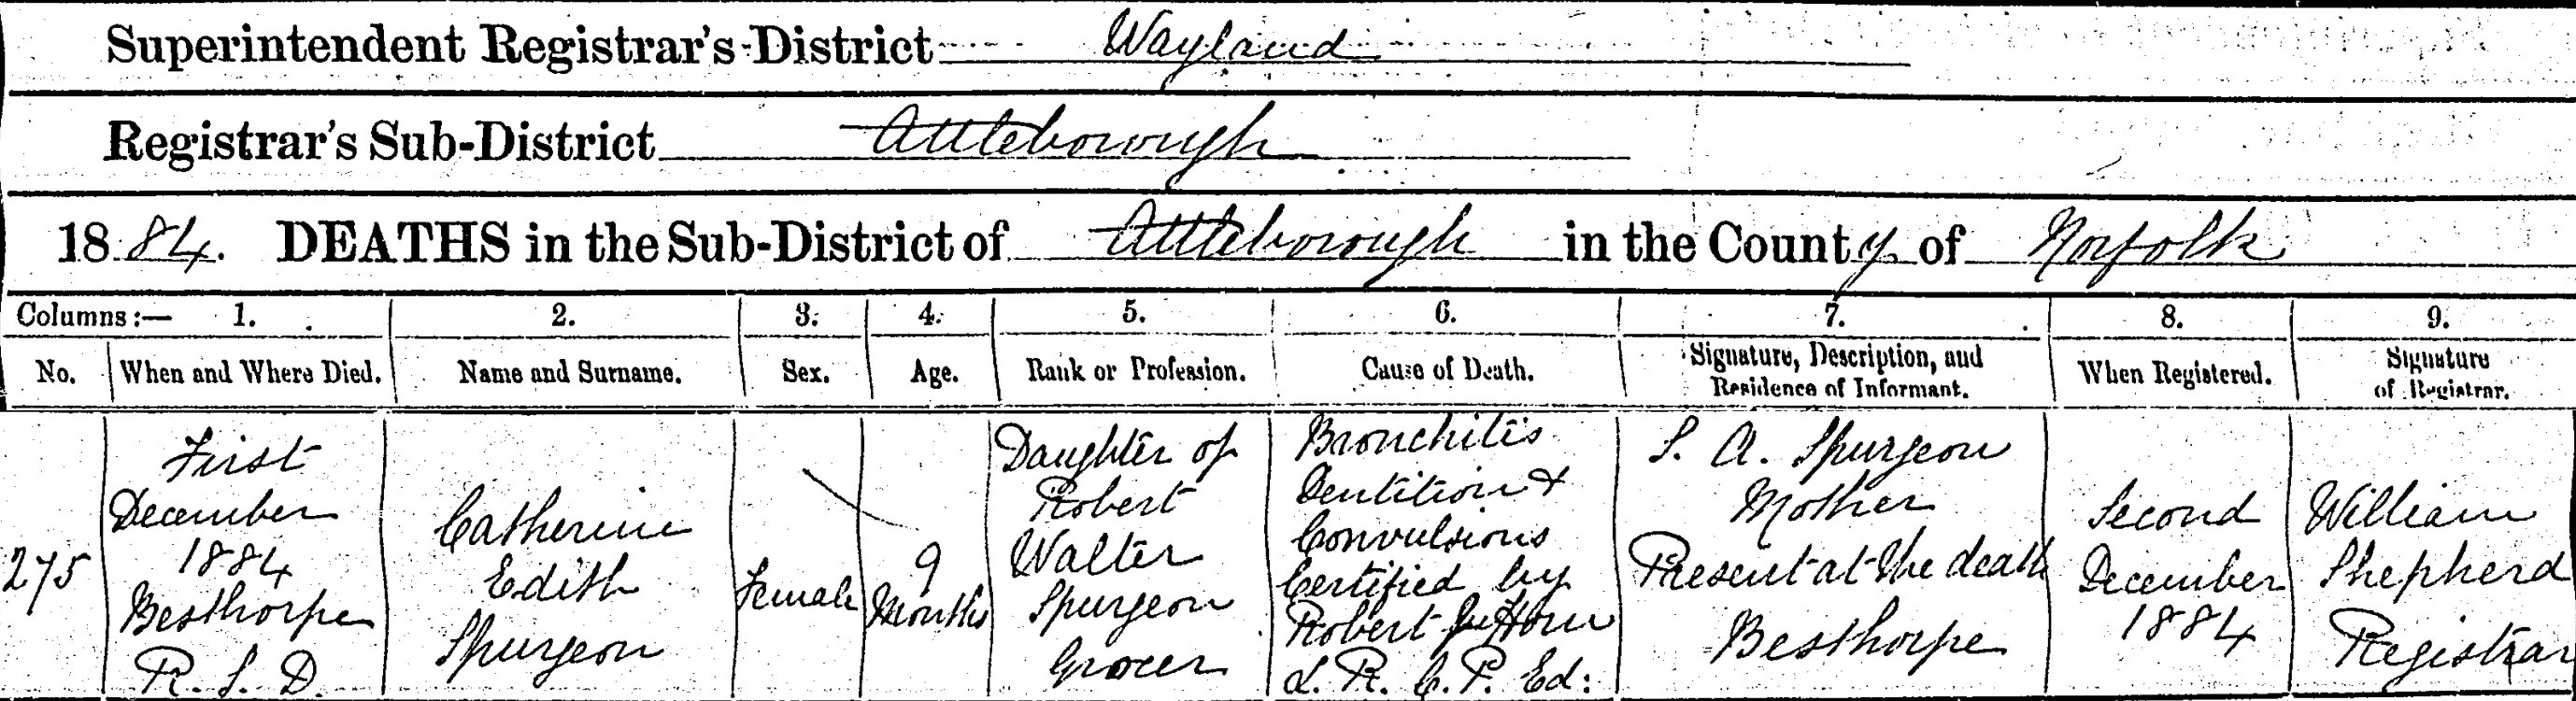 Superintendent Registrar's District Wayland
Registrar's Sub-District Attleborough
1884. DEATHS in the Sub-District of Attleborough in the County of Norfolk
Columns:— 1. 2. 3. 4. 5. 6. 7. 8. 9.
No. When and Where Died. Name and Surname. Sex. Age. Rank or Profession. Cause of Death. Signature, Description, and Residence of Informant. When Registered. Signature of Registrar.
275
First
December
1884
Besthorpe
R. S. D.
Catherine
Edith
Spurgeon
Female
9
Months
Daughter of
Robert
Walter
Spurgeon
Grocer
Bronchitis
Dentition &
Convulsions
Certified by
Robert
L. R. C. P. Ed:
S. A. Spurgeon
Mother
Present at the death
Besthorpe
Second
December
1884
William
Shepherd
Registrar